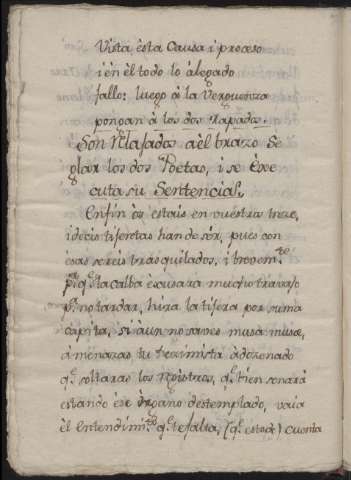 Vista èsta Causa i proceso
i èn èl todo lo àlegado
fallo: luego à la Verguenza
pongan à los dos Rapados.
Son Relasados aèl brazo Se
glar los dos Poetas, i se Exe
cuta su Sentencia.
Enfin òs estais en vuestra treze,
i decis tiseretas han de sèr, pues con
esas sereis trasquilados, i tropem.te
q.e la calba èscusara mucho travajo
p.r no tardar, hira la tisera por suma
capita, si àun no saveis musa musæ,
àmenazas tu àdozenado
q.e soltaras los Rejistros, q.e bien sonarà
estando èse òrgano destemplado, vaia
èl Entendim.to q.e te falta, (q.e esto de) cuenta